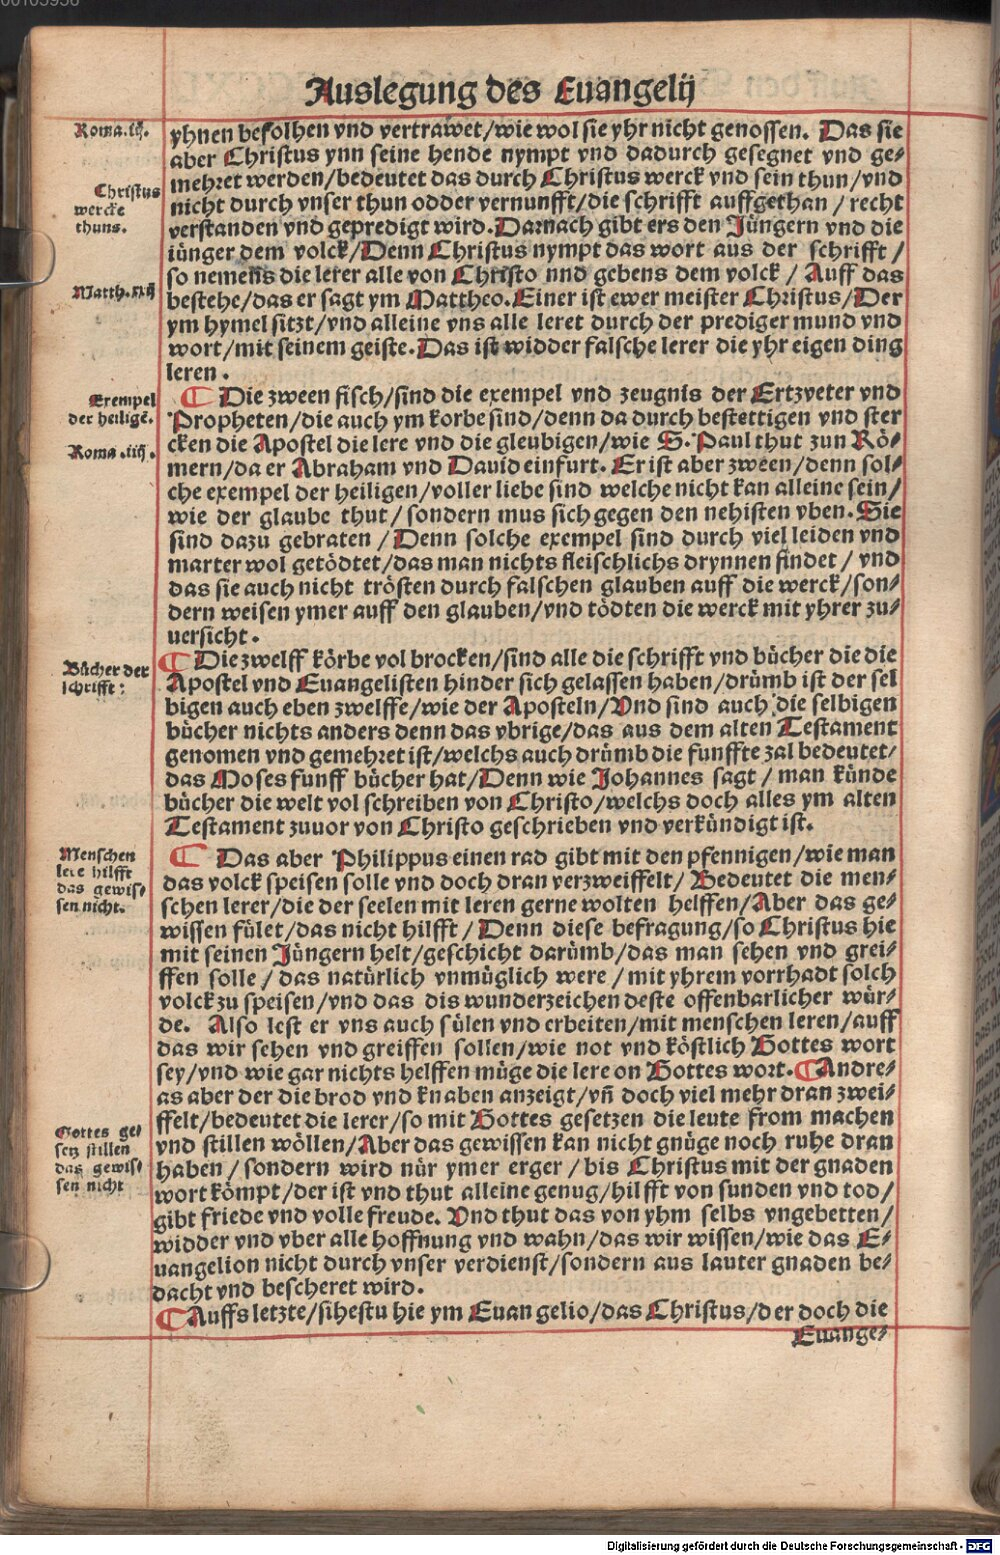 Auslegung des Euangelij
Roma.iij.
yhnen befolhen vnd vertrawet/wie wol sie yhr nicht genossen. Das sie
aber Christus ynn seine hende nympt vnd dadurch gesegnet vnd ge-
Christus
wercke
thuns.
mehret werden/bedeutet das durch Christus werck vnd sein thun/vnd
nicht durch vnser thun odder vernunfft/die schrifft auffgethan/recht
verstanden vnd gepredigt wird. Darnach gibt ers den Jüngern vnd die
jünger dem volck/Denn Christus nympt das wort aus der schrifft/
so nemens die lerer alle von Christo nnd gebens dem volck/Auff das
bestehe/das er sagt ym Mattheo. Einer ist ewer meister Christus/Der
ym hymel sitzt/vnd alleine vns alle leret durch der prediger mund vnd
wort/mit seinem geiste. Das ist widder falsche lerer die yhr eigen ding
leren.
Exempel
der heiligē.
Roma.iiij.
¶ Die zween fisch/sind die exempel vnd zeugnis der Ertzveter vnd
Propheten/die auch ym korbe sind/denn da durch bestettigen vnd ster
cken die Apostel die lere vnd die gleubigen/wie S. Paul thut zun Rö-
mern/da er Abraham vnd Dauid einfurt. Er ist aber zween/denn sol-
che exempel der heiligen/voller liebe sind welche nicht kan alleine sein/
wie der glaube thut/sondern mus sich gegen den nehisten vben. Sie
sind dazu gebraten/Denn solche exempel sind durch viel leiden vnd
marter wol getödtet/das man nichts fleischlichs drynnen findet/vnd
das sie auch nicht trösten durch falschen glauben auff die werck/son-
dern weisen ymer auff den glauben/vnd tödten die werck mit yhrer zu-
uersicht.
Bücher der
schrifft:
¶ Die zwelff körbe vol brocken/sind alle die schrifft vnd bücher die die
Apostel vnd Euangelisten hinder sich gelassen haben/drümb ist der sel
bigen auch eben zwelffe/wie der Aposteln/Vnd sind auch die selbigen
bücher nichts anders denn das vbrige/das aus dem alten Testament
genomen vnd gemehret ist/welchs auch drümb die funffte zal bedeutet/
das Moses funff bücher hat/Denn wie Johannes sagt/man künde
bücher die welt vol schreiben von Christo/welchs doch alles ym alten
Testament zuuor von Christo geschrieben vnd verkündigt ist.
Menschen
lere hilfft
das gewis-
sen nicht.
¶ Das aber Philippus einen rad gibt mit den pfennigen/wie man
das volck speisen solle vnd doch dran verzweiffelt/Bedeutet die men-
schen lerer/die der seelen mit leren gerne wolten helffen/Aber das ge-
wissen fület/das nicht hilfft/Denn diese befragung/so Christus hie
mit seinen Jüngern helt/geschicht darümb/das man sehen vnd grei-
ffen solle/das natürlich vnmüglich were/mit yhrem vorrhadt solch
volck zu speisen/vnd das dis wunderzeichen deste offenbarlicher wür-
de. Also lest er vns auch sülen vnd erbeiten/mit menschen leren/auff
das wir sehen vnd greiffen sollen/wie not vnd köstlich Gottes wort
sey/vnd wie gar nichts helffen müge die lere on Gottes wort. ¶ Andre-
as aber der die brod vnd knaben anzeigt/vñ doch viel mehr dran zwei-
ffelt/bedeutet die lerer/so mit Gottes gesetzen die leute from machen
Gottes ge-
setz stillen
das gewis-
sen nicht
vnd stillen wöllen/Aber das gewissen kan nicht gnüge noch ruhe dran
haben/sondern wird nür ymer erger/bis Christus mit der gnaden
wort kömpt/der ist vnd thut alleine genug/hilfft von sunden vnd tod/
gibt friede vnd volle freude. Vnd thut das von yhm selbs vngebetten/
widder vnd vber alle hoffnung vnd wahn/das wir wissen/wie das E-
uangelion nicht durch vnser verdienst/sondern aus lauter gnaden be-
dacht vnd bescheret wird.
¶ Auffs letzte/sihestu hie ym Euangelio/das Christus/der doch die
Euange-
Digitalisierung gefördert durch die Deutsche Forschungsgemeinschaft - DFG